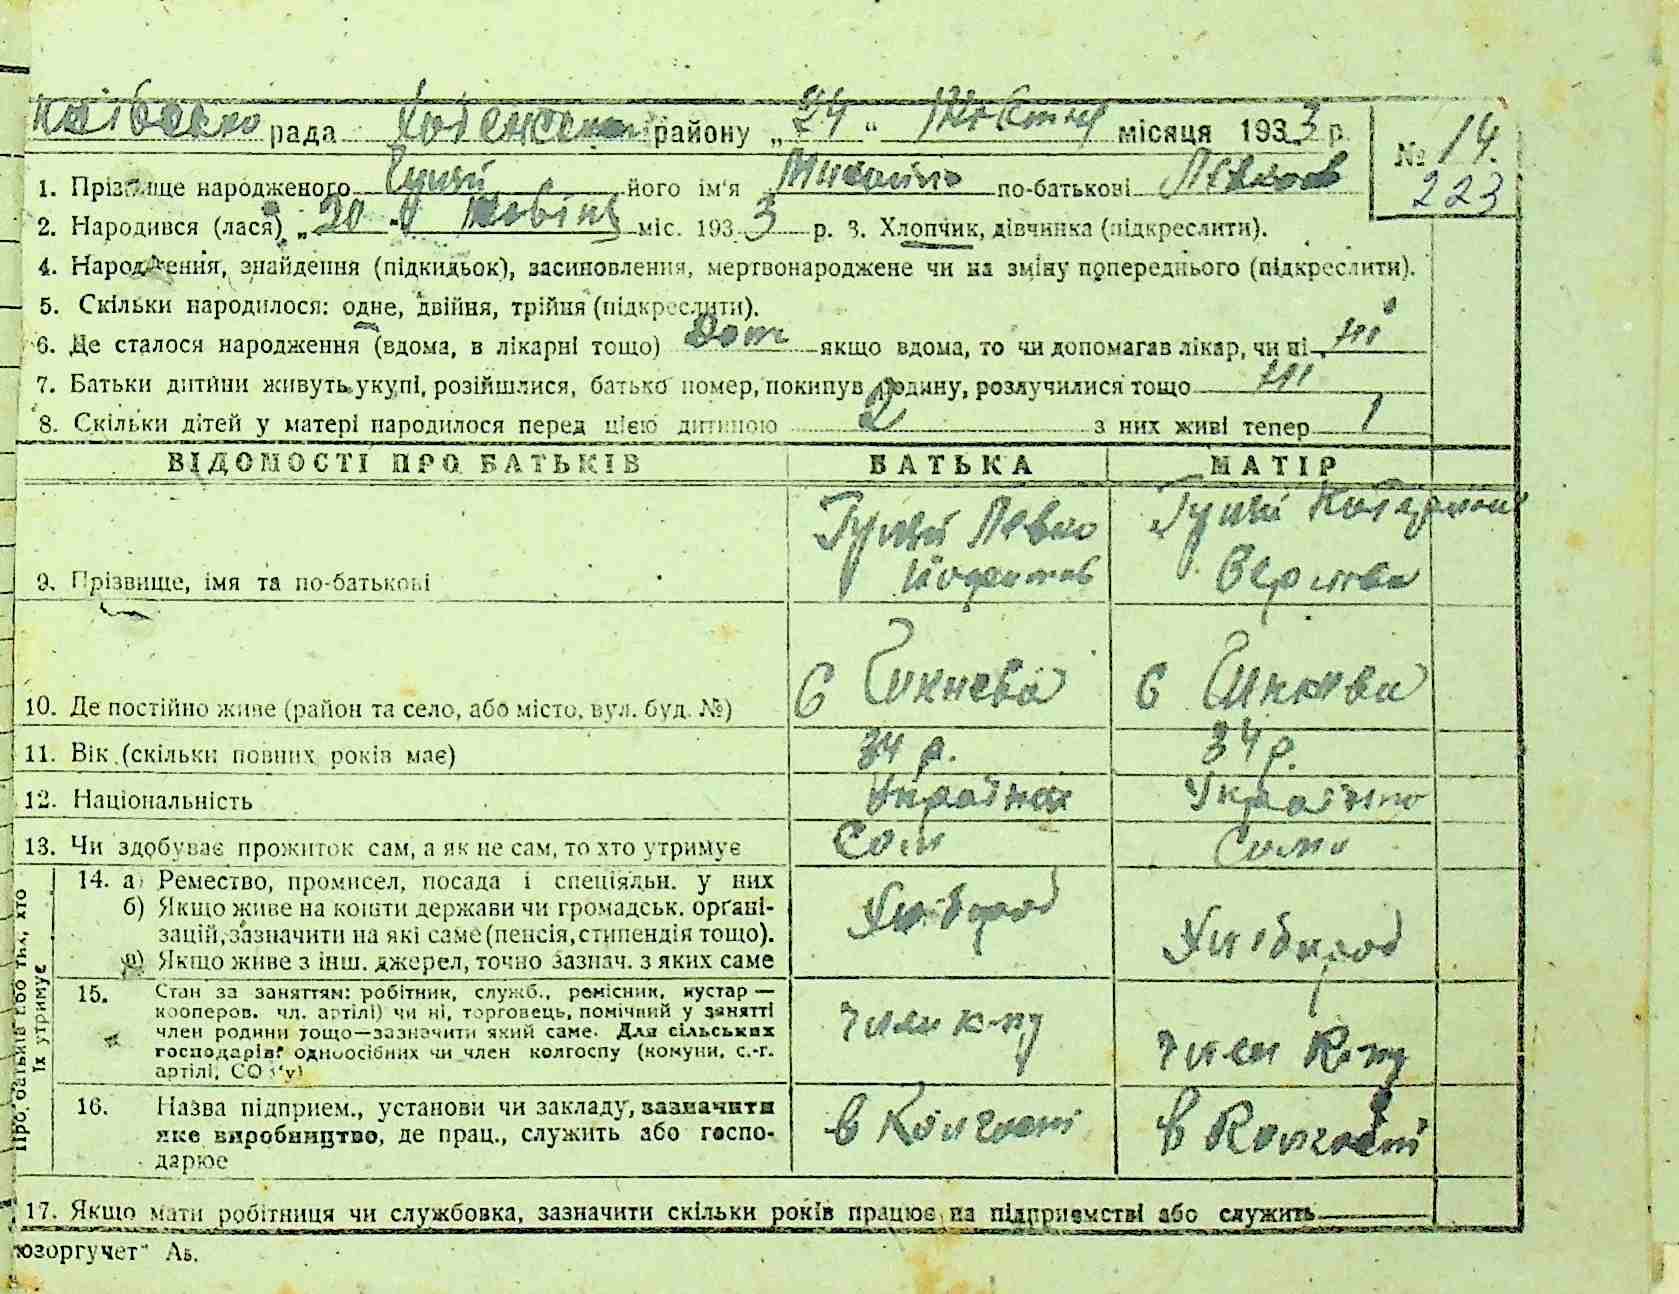 рада району „24“ Жовтня місяця 1933 р.
№ 14.
223
1. Прізвище народженого Гуций його ім'я Михайло по-батькові Левков
2. Народився (лася) „20“ Жовтня міс. 1933 р. 3. Хлопчик, дівчинка (підкреслити).
4. Народження, знайдення (підкидьок), засиновлення, мертвонароджене чи на зміну попереднього (підкреслити).
5. Скільки народилося: одне, двійня, трійня (підкреслити).
6. Де сталося народження (вдома, в лікарні тощо) Дом якщо вдома, то чи допомагав лікар, чи ні ні
7. Батьки дитини живуть укупі, розійшлися, батько помер, покинув родину, розлучилися тощо ні
8. Скільки дітей у матері народилося перед цією дитиною 2 з них живі тепер 1
ВІДОМОСТІ ПРО БАТЬКІВ БАТЬКА МАТІР
Левко
9. Прізвище, імя та по-батькові
10. Де постійно живе (район та село, або місто, вул. буд. №) с с
11. Вік (скільки повних років має) 34 р. 34 р.
12. Національність Українец Українка
13. Чи здобуває прожиток сам, а як не сам, то хто утримує Сам Сама
Про батьків або тих, хто їх утримує
14. а) Ремество, промисел, посада і спеціяльн. у них
б) Якщо живе на кошти держави чи громадськ. органі-
зацій, зазначити на які саме (пенсія, стипендія тощо).
в) Якщо живе з інш. джерел, точно зазнач. з яких саме
Хлібороб Хлібороб
15. Стан за заняттям: робітник, служб., ремісник, кустар —
кооперов. чл. артілі) чи ні, торговець, помічний у занятті
член родини тощо—зазначити який саме. Для сільських
господарів: одноосібних чи член колгоспу (комуни, с.-г.
артілі, СОЗ'у)
член к-пу член к-пу
16. Назва підприєм., установи чи закладу, зазначити
яке виробництво, де прац., служить або госпо-
дарює
в Колгоспі в Колгоспі
17. Якщо мати робітниця чи службовка, зазначити скільки років працює на підприємстві або служить
юзоргучет" Ав.